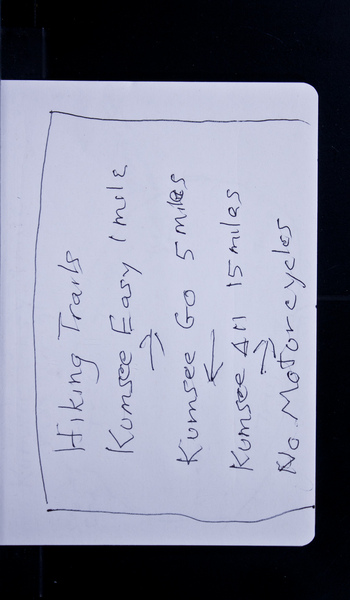 Hiking Trails
Kumsee Easy 1 mile
Kumsee Go 5 miles
Kumsee All 15 miles
No Motorcycles